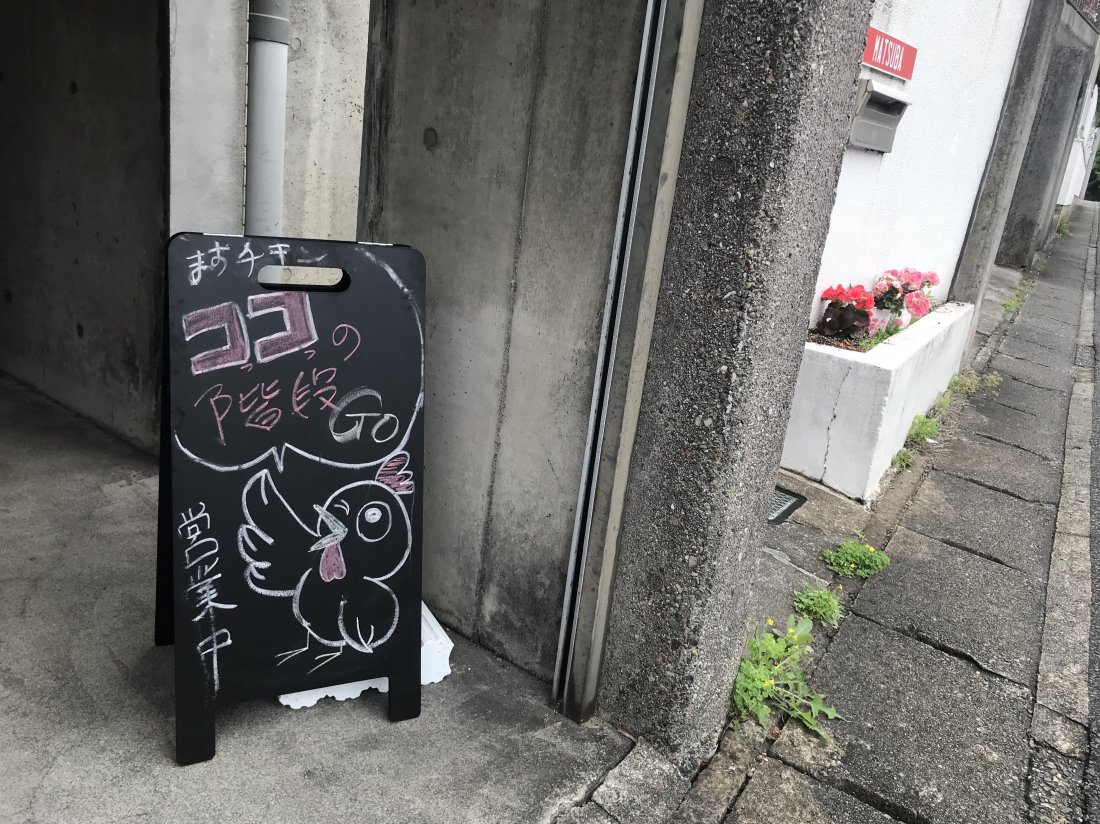 ますチキン
コっコっの
階段GO
営業中
MATSUBA